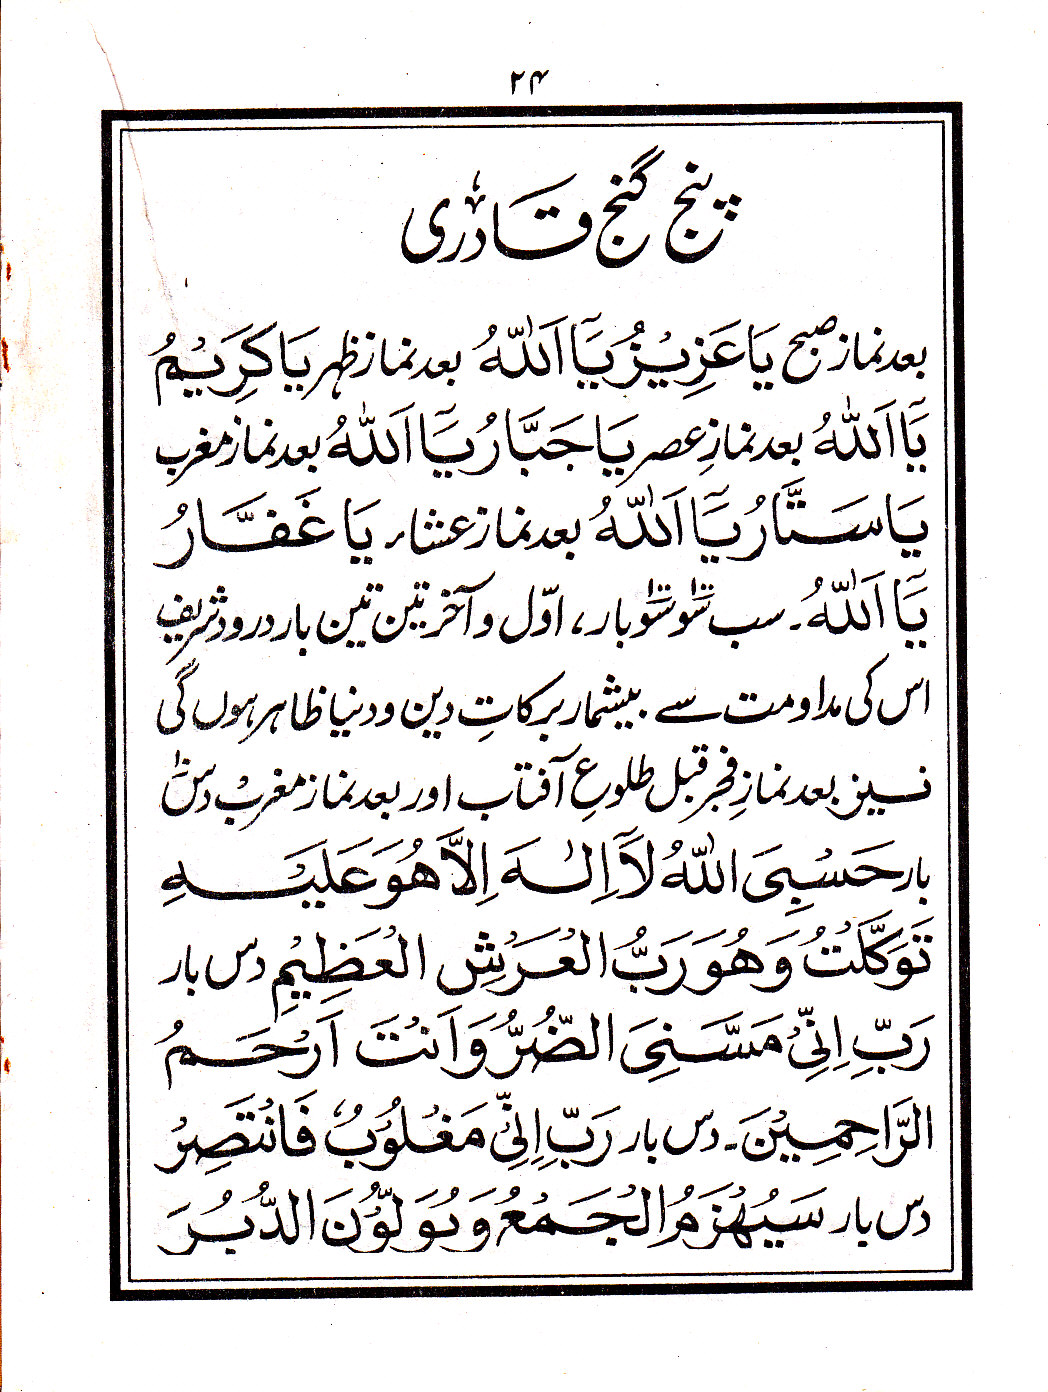 ۲۴
پنج گنج قادری
بعد نماز صبح يَا عَزِيْزُ يَآ اَللّٰهُ بعد نماز ظہر يَا كَرِيْمُ
يَآ اَللّٰهُ بعد نمازِ عصر يَا جَبَّارُ يَآ اَللّٰهُ بعد نماز مغرب
يَا سَتَّارُ يَآ اَللّٰهُ بعد نماز عشاء يَا غَفَّارُ
يَآ اَللّٰهُ۔ سب سَو سَو بار، اوّل و آخر تین تین بار درود شریف
اس کی مداومت سے بیشمار برکاتِ دین و دنیا ظاہر ہوں گی
نیز بعد نمازِ فجر قبل طلوعِ آفتاب اور بعد نماز مغرب دس
بار حَسْبِیَ اللّٰهُ لَآ اِلٰهَ اِلَّا هُوَ عَلَيْهِ
تَوَكَّلْتُ وَهُوَ رَبُّ الْعَرْشِ الْعَظِيْمِ دس بار
رَبِّ اِنِّیْ مَسَّنِیَ الضُّرُّ وَاَنْتَ اَرْحَمُ
الرَّاحِمِيْنَ۔ دس بار رَبِّ اِنِّیْ مَغْلُوْبٌ فَانْتَصِرْ
دس بار سَيُهْزَمُ الْجَمْعُ وَيُوَلُّوْنَ الدُّبُرَ